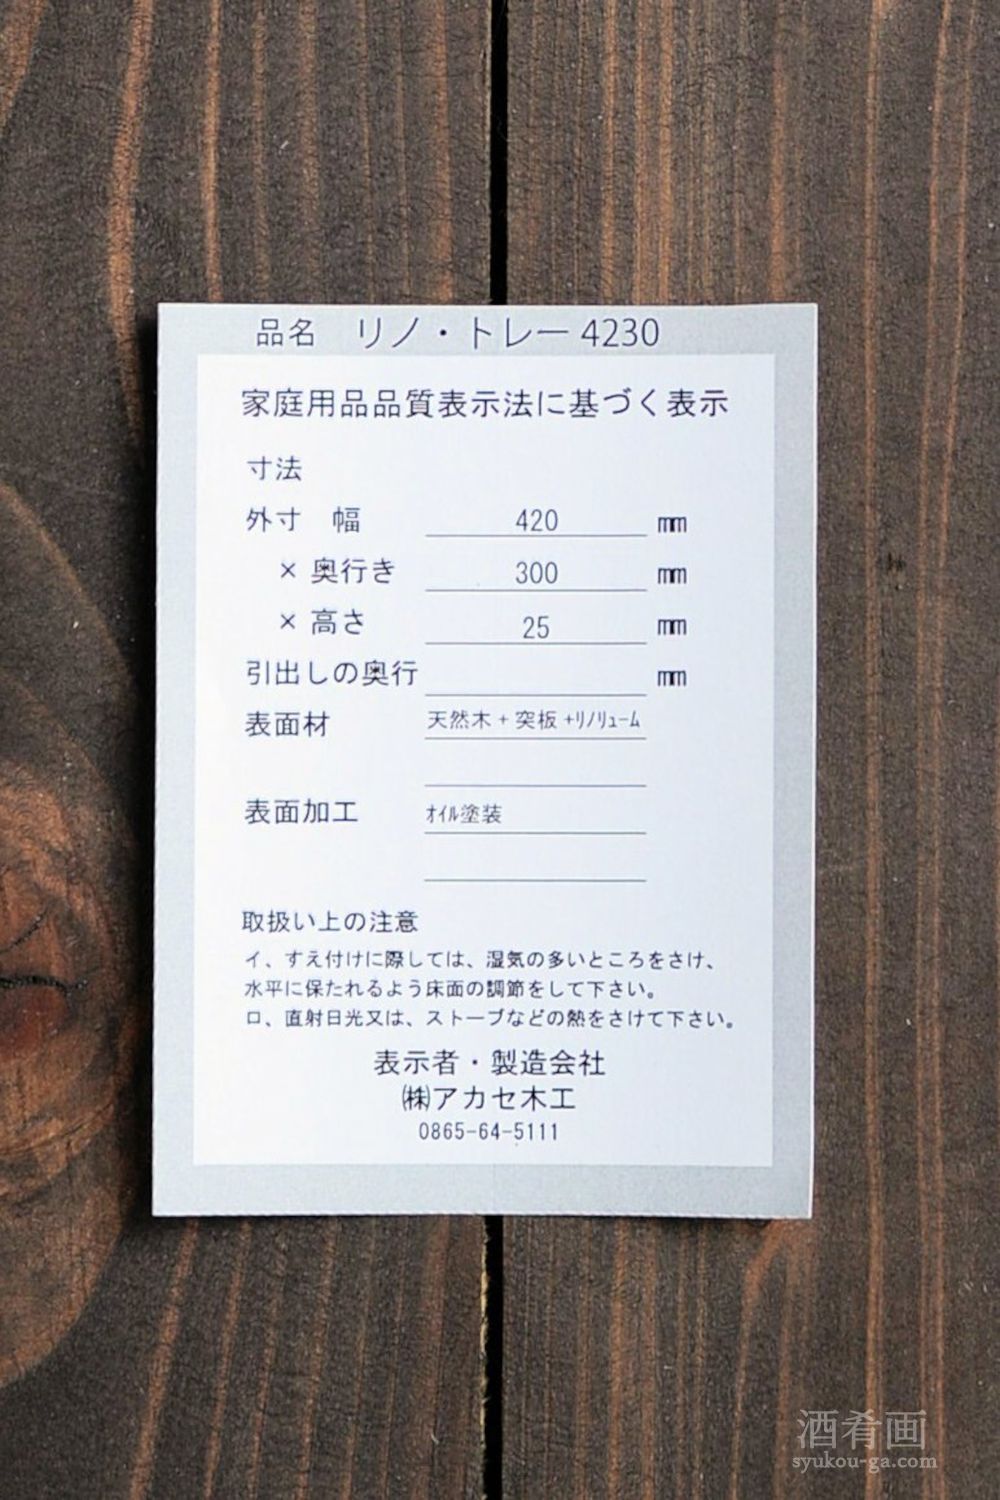 品名 リノ・トレー 4230
家庭用品品質表示法に基づく表示
寸法
外寸 幅 420 ㎜
× 奥行き 300 ㎜
× 高さ 25 ㎜
引出しの奥行 ㎜
表面材 天然木 + 突板 +ﾘﾉﾘｭｰﾑ
表面加工 ｵｲﾙ塗装
取扱い上の注意
イ、すえ付けに際しては、湿気の多いところをさけ、
水平に保たれるよう床面の調節をして下さい。
ロ、直射日光又は、ストーブなどの熱をさけて下さい。
表示者・製造会社
㈱アカセ木工
0865-64-5111
酒肴画
syukou-ga.com